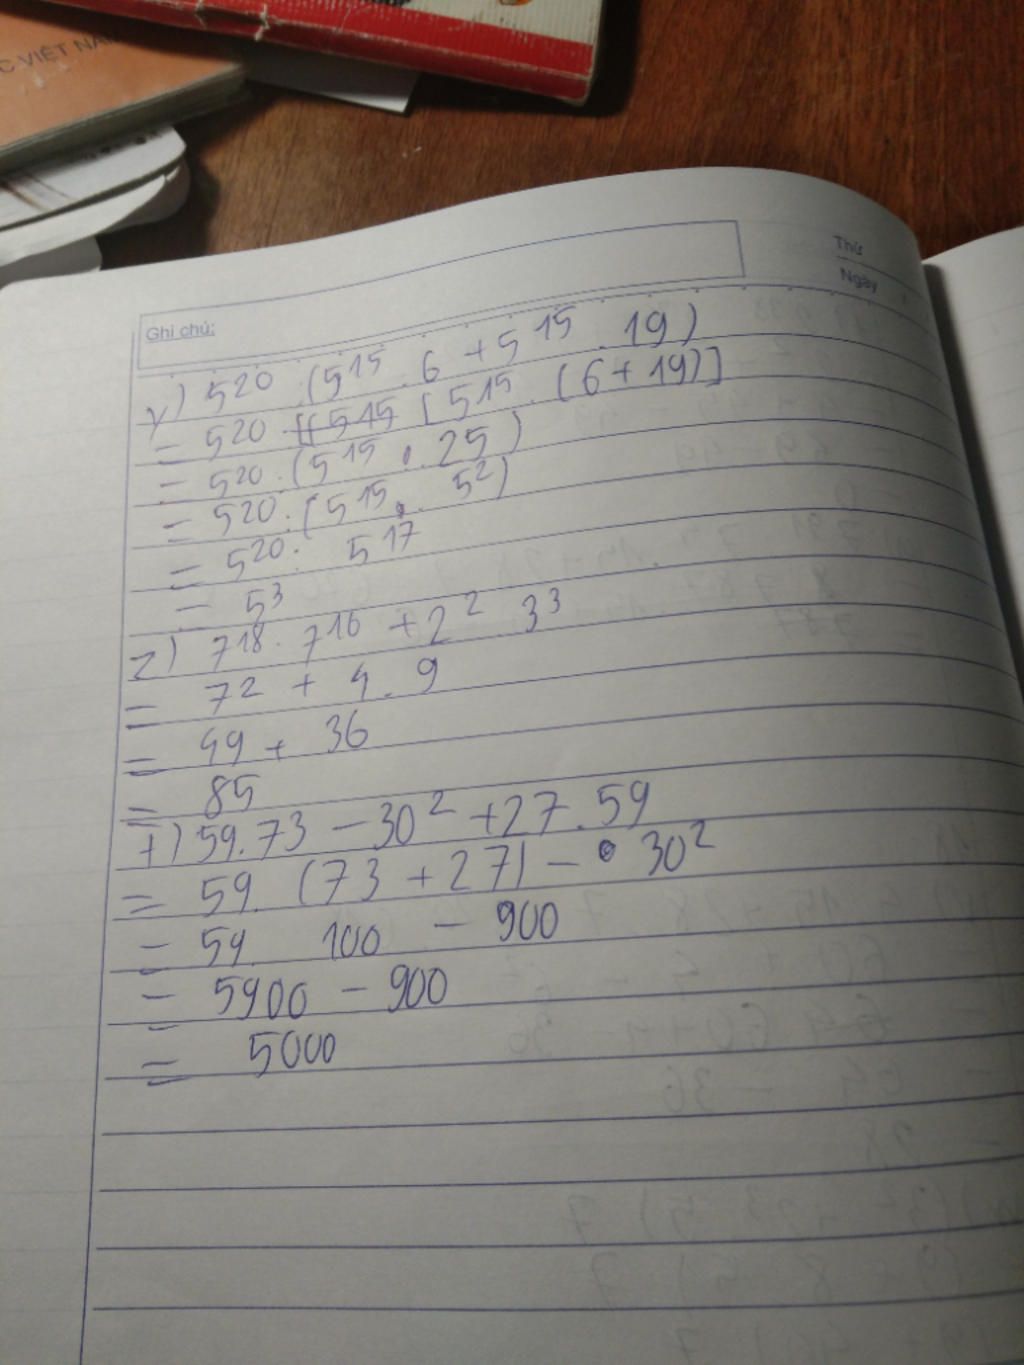 C VIỆT NAM
Thứ
Ngày
Ghi chú:
y) 5²⁰ : (5¹⁵ . 6 + 5¹⁵ . 19)
= 5²⁰ : [5¹⁵ . (6 + 19)]
= 5²⁰ : (5¹⁵ . 25)
= 5²⁰ : (5¹⁵ . 5²)
= 5²⁰ : 5¹⁷
= 5³
z) 7¹⁸ : 7¹⁶ + 2² . 3³
= 7² + 4 . 9
= 49 + 36
= 85
+) 59.73 - 30² + 27.59
= 59. (73 + 27) - 30²
= 59 100 - 900
= 5900 - 900
= 5000